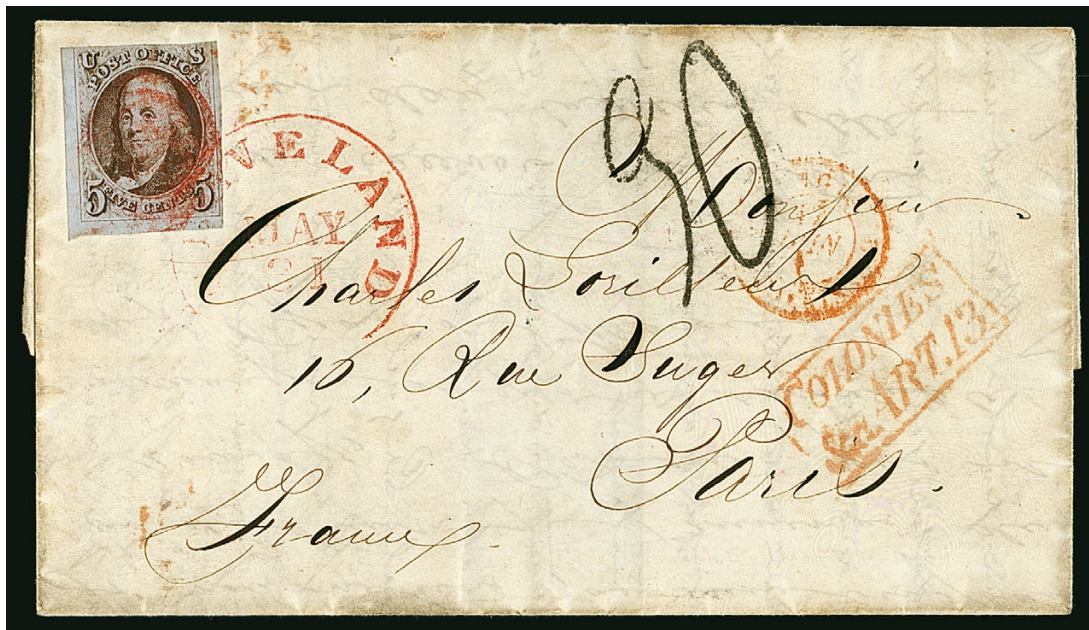 U S
POST OFFICE
5 FIVE CENTS 5
CLEVELAND
MAY
21
30
Monsieur
Charles Lorilleux
16, Rue Suger
Paris.
France
COLONIES
&c. ART. 13.